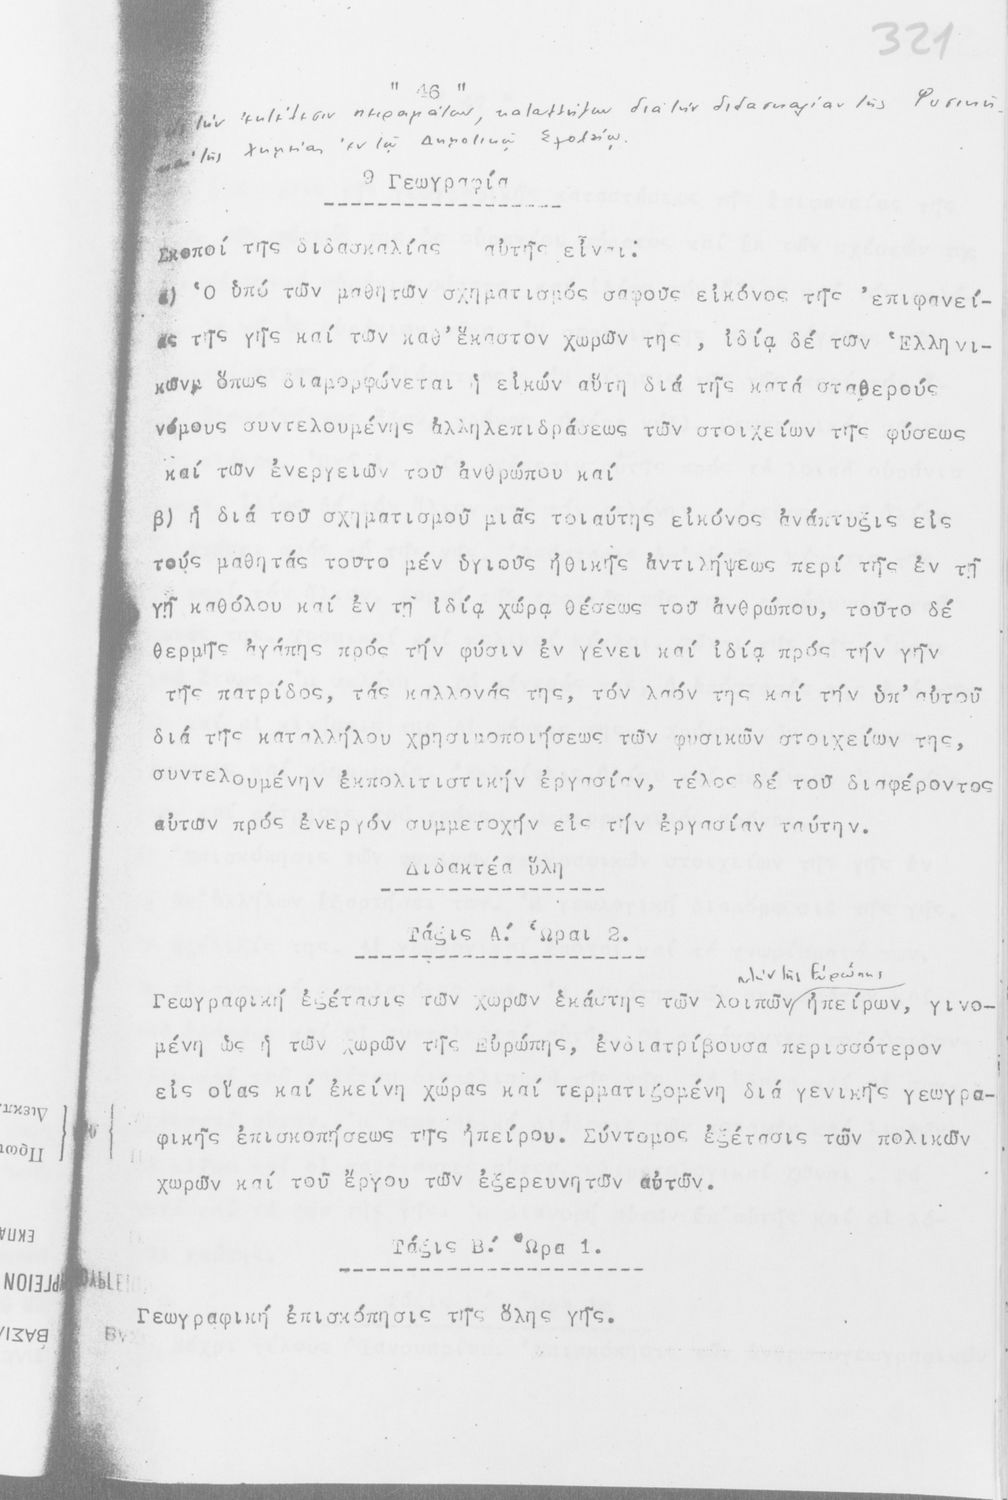 321
" 46 "
τήν ἐκτέλεσιν πειραμάτων, καταλλήλων διά τήν διδασκαλίαν τῆς Φυσικῆς
καί τῆς Χημείας ἐν τῷ Δημοτικῷ Σχολείῳ.
9 Γεωγραφία
Σκοποί τῆς διδασκαλίας αὐτῆς εἶναι:
α) Ὁ ὑπό τῶν μαθητῶν σχηματισμός σαφοῦς εἰκόνος τῆς ἐπιφανεί-
ας τῆς γῆς καί τῶν καθ' ἕκαστον χωρῶν της , ἰδίᾳ δέ των Ἑλληνι-
κῶν, ὅπως διαμορφώνεται ἡ εἰκών αὕτη διά τῆς κατά σταθερούς
νόμους συντελουμένης ἀλληλεπιδράσεως τῶν στοιχείων τῆς φύσεως
καί τῶν ἐνεργειῶν τοῦ ἀνθρώπου καί
β) ἡ διά τοῦ σχηματισμοῦ μιᾶς τοιαύτης εἰκόνος ἀνάπτυξις εἰς
τούς μαθητάς τοῦτο μέν ὑγιοῦς ἠθικῆς ἀντιλήψεως περί τῆς ἐν τῇ
γῇ καθόλου καί ἐν τῇ ἰδίᾳ χώρᾳ θέσεως τοῦ ἀνθρώπου, τοῦτο δέ
θερμῆς ἀγάπης πρός τήν φύσιν ἐν γένει καί ἰδίᾳ πρός τήν γῆν
τῆς πατρίδος, τάς καλλονάς της, τόν λαόν της καί τήν ὑπ' αὐτοῦ
διά τῆς καταλλήλου χρησιμοποιήσεως τῶν φυσικῶν στοιχείων της,
συντελουμένην ἐκπολιτιστικήν ἐργασίαν, τέλος δέ τοῦ διαφέροντος
αὐτων πρός ἐνεργόν συμμετοχήν εἰς τήν ἐργασίαν ταύτην.
Διδακτέα ὕλη
Τάξις Α΄. Ὧραι 2.
πλήν τῆς Εὐρώπης
Γεωγραφική ἐξέτασις τῶν χωρῶν ἑκάστης τῶν λοιπῶν ἠπείρων, γινο-
μένη ὡς ἡ τῶν χωρῶν τῆς Εὐρώπης, ἐνδιατρίβουσα περισσότερον
εἰς οἵας καί ἐκείνη χώρας καί τερματιζομένη διά γενικῆς γεωγρα-
φικῆς ἐπισκοπήσεως τῆς ἠπείρου. Σύντομος ἐξέτασις τῶν πολικῶν
χωρῶν καί τοῦ ἔργου τῶν ἐξερευνητῶν αὐτῶν.
Τάξις Β΄. Ὥρα 1.
Γεωγραφική ἐπισκόπησις τῆς ὅλης γῆς.